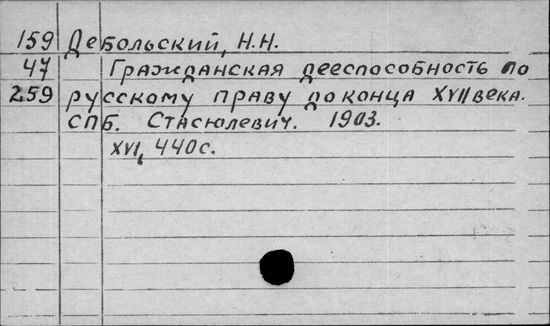 159 Дебольский, Н.Н.
47 Гражданская дееспособность по
259 русскому праву до конца XVII века.
СПБ. Стасюлевич. 1903.
XVI, 440с.